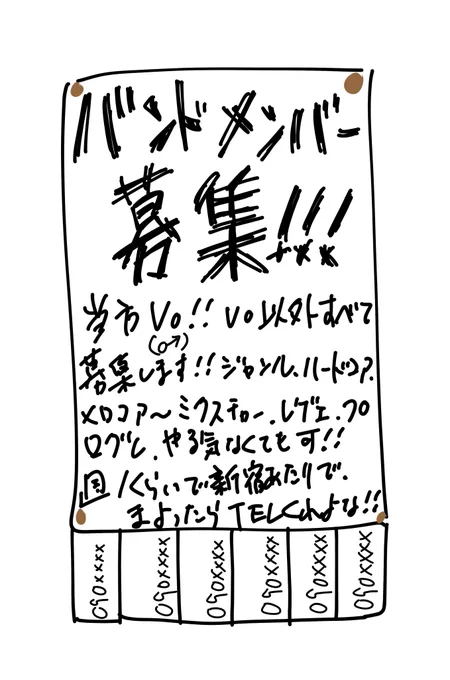 バンドメンバー
募集!!!
当方Vo!! Vo以外すべて
募集します!! ジャンル、ハードコア、
メロコア〜ミクスチャー、レゲエ、プロ
ログレ、やる気なくても可!!
週1くらいで新宿あたりで、
まよったらTELくれよな!!
090xxxx
090xxxx
090xxxx
090xxxx
090xxxx
090xxxx